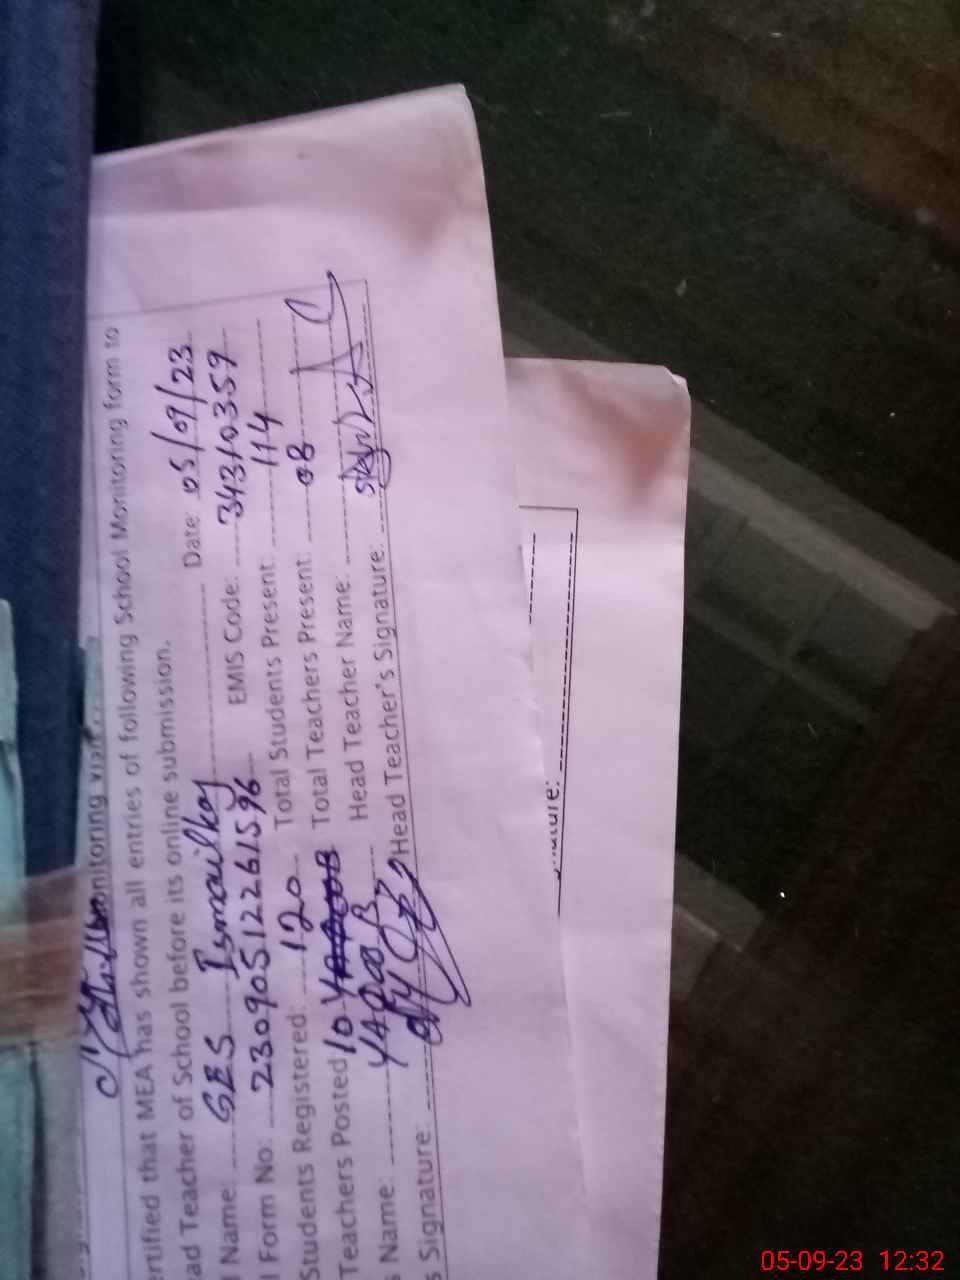 onitoring visit
ertified that MEA has shown all entries of following School Monitoring form to
ad Teacher of School before its online submission.
Date: 05/09/23
Name: GES Ismailkoj EMIS Code: 34310359
l Form No: 23090512261596 Total Students Present: 114
Students Registered: 120 Total Teachers Present: 08
Teachers Posted 10 Head Teacher Name:
s Name: YAQOOB Head Teacher's Signature:
s Signature:
ature:
05-09-23 12:32